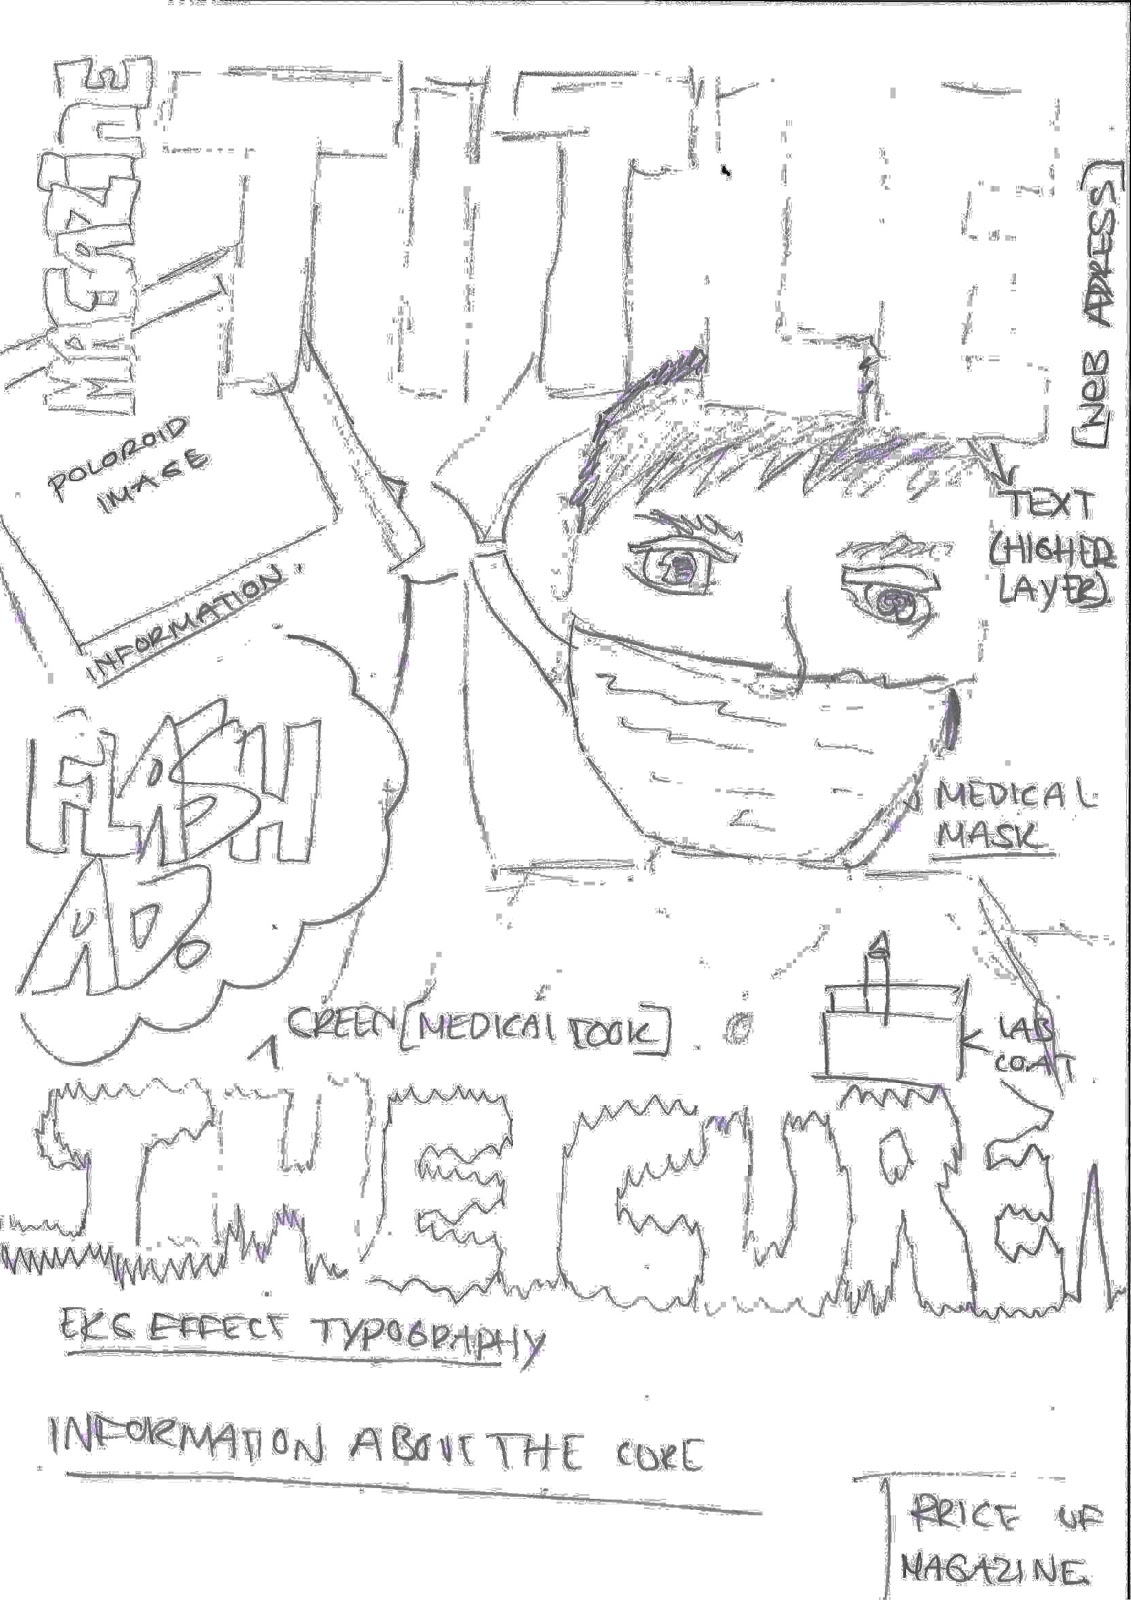 MAGAZINE
TITLE
[WEB ADRESS]
POLOROID
IMAGE
INFORMATION.
TEXT
(HIGHER
LAYER)
FLASH
AD.
MEDICAL
MASK
GREEN [MEDICAL LOOK]
LAB
COAT
THE CURE
EKG EFFECT TYPOGRAPHY
INFORMATION ABOUT THE CURE
PRICE OF
MAGAZINE